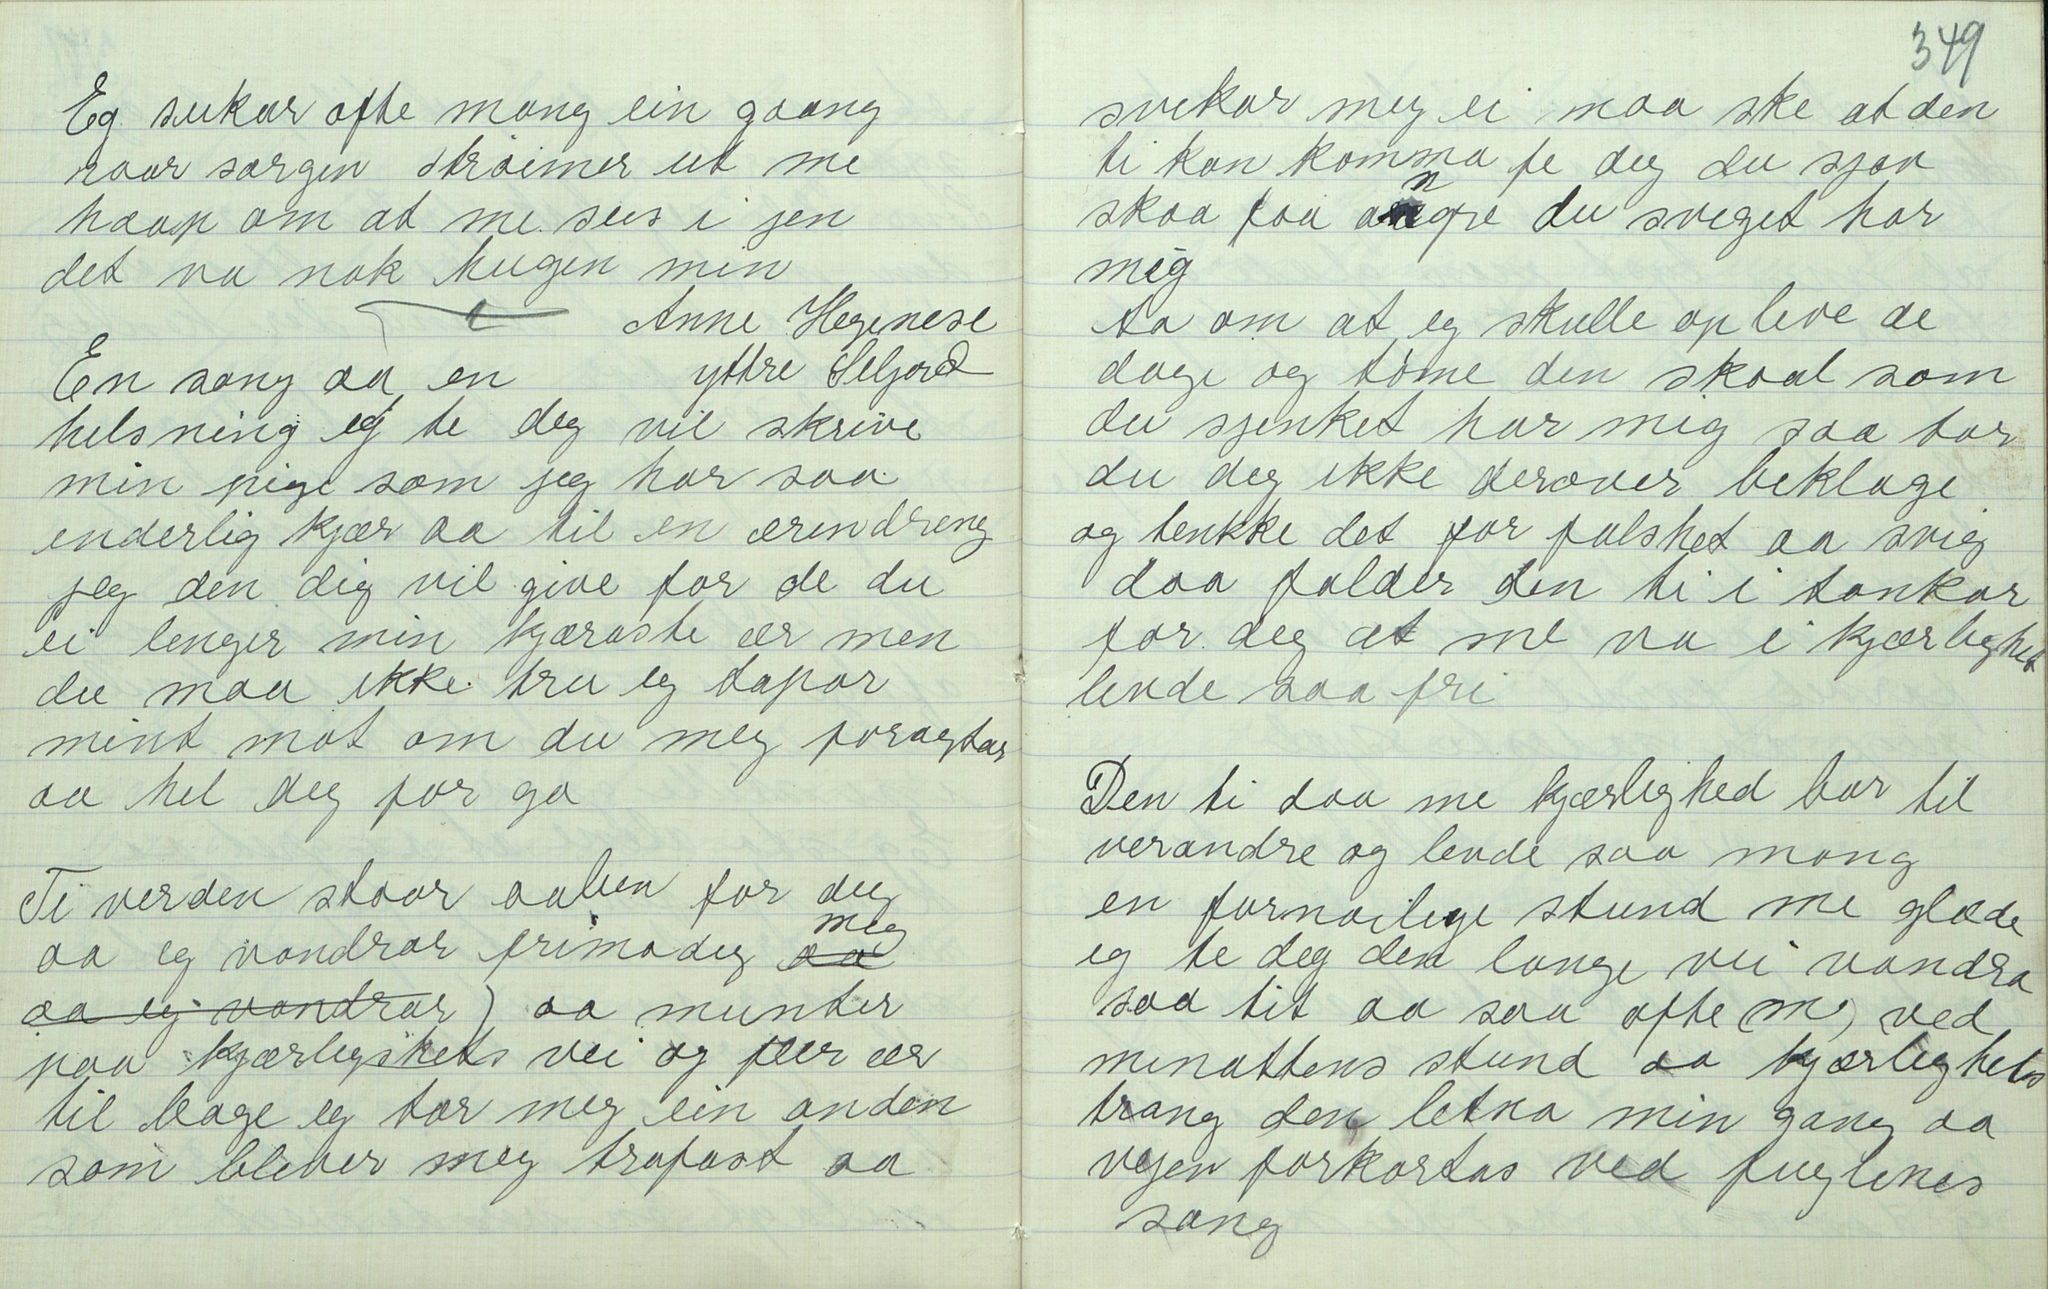 Eg sukar ofte mang ein gaang
naar sorgen strøimer ut me
haap om at me sees i jen
det va nok hugen min
Anne Hegenese
yttre Seljord
En sang aa en
helsning eg te deg vil skrive
min pige som jeg har saa
enderlig kjær aa til en ærindreng
jeg den dig vil give for de du
ei lenger min kjæraste ær men
du maa ikke tru eg tapar
mint mot om du meg foragtar
aa hel deg for go
Ti verden staar aaben for deg
aa eg vandrar frimodeg meg aa
aa eg vandrar) aa munter
paa kjærlegskets vei og før ær
til bage eg tar meg ein anden
som blever meg trofast aa
349
svikar meg ei maa ske at den
ti kan komma fe deg du sjøv
skaa faa angre du sviget har
mig
ta om at eg skulle opleve de
dage og tøme den skaal som
du sjenket har mig saa tar
du deg ikke derover beklage
og tenkke det for falsket aa svig
daa falder den ti i tankar
for deg at me va i kjærleghet
levde saa fri
Den ti daa me kjærlighed bar til
verandre og levde saa mang
en fornøilige stund me glæde
eg te deg den lange vei vandra
saa tit aa saa ofte (m) ved
minattens stund aa kjærleghets
trang den letna min gang aa
vejen forkortas ved fuglenes
sang